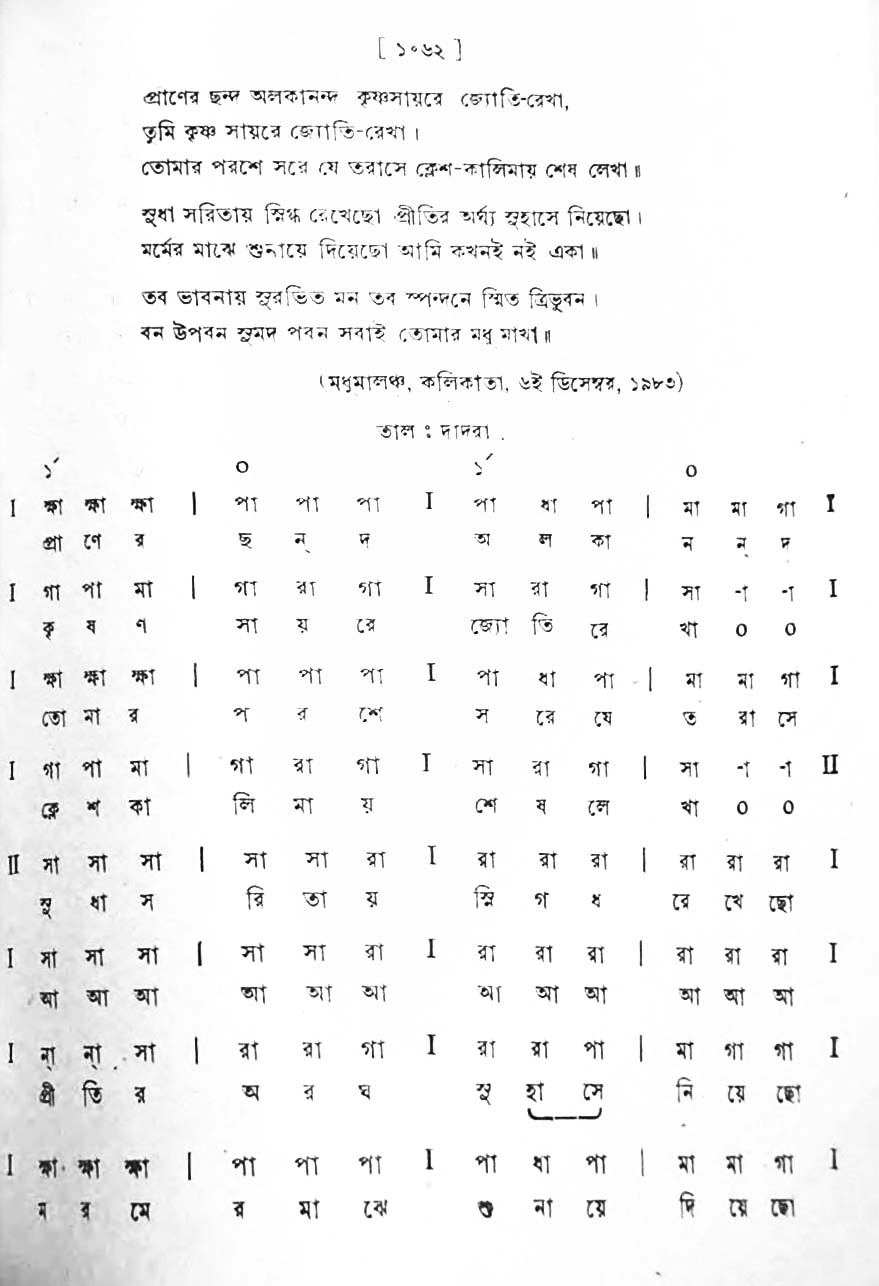 [ ১০৬২ ]
প্রাণের ছন্দ অলকানন্দ কৃষ্ণসায়রে জ্যোতি-রেখা,
তুমি কৃষ্ণ সায়রে জ্যোতি-রেখা।
তোমার পরশে সরে যে তরাসে ক্লেশ-কালিমায় শেষ লেখা॥
সুধা সরিতায় স্নিগ্ধ রেখেছো প্রীতির অর্ঘ্য সুহাসে নিয়েছো।
মর্মের মাঝে শুনায়ে দিয়েছো আমি কখনই নই একা॥
তব ভাবনায় সুরভিত মন তব স্পন্দনে স্মিত ত্রিভুবন।
বন উপবন সুমদ পবন সবাই তোমার মধু মাখা॥
(মধুমালঞ্চ, কলিকাতা, ৬ই ডিসেম্বর, ১৯৮৩)
তাল : দাদরা
১´ ০ ১´ ০
I ক্ষা ক্ষা ক্ষা | পা পা পা I পা ধা পা | মা মা গা I
প্রা ণে র ছ ন্ দ অ ল কা ন ন্ দ
I গা পা মা | গা রা গা I সা রা গা | সা -া -া I
কৃ ষ ণ সা য় রে জ্যো তি রে খা ০ ০
I ক্ষা ক্ষা ক্ষা | পা পা পা I পা ধা পা | মা মা গা I
তো মা র প র শে স রে যে ত রা সে
I গা পা মা | গা রা গা I সা রা গা | সা -া -া II
ক্লে শ কা লি মা য় শে ষ লে খা ০ ০
II সা সা সা | সা সা রা I রা রা রা | রা রা রা I
সু ধা স রি তা য় স্নি গ ধ রে খে ছো
I সা সা সা | সা সা রা I রা রা রা | রা রা রা I
আ আ আ আ আ আ আ আ আ আ আ আ
I না্ না্ সা | রা রা গা I রা রা পা | মা গা গা I
প্রী তি র অ র ঘ সু হা সে নি য়ে ছো
I ক্ষা ক্ষা ক্ষা | পা পা পা I পা ধা পা | মা মা গা I
ম র মে র মা ঝে শু না য়ে দি য়ে ছো